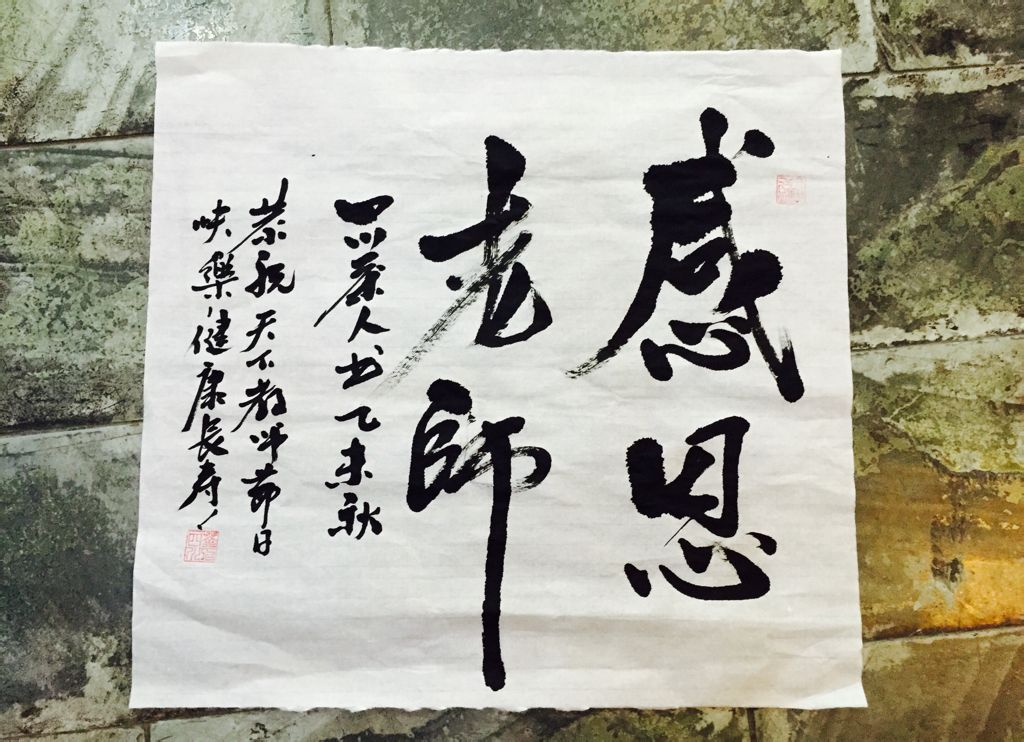 感恩
老師
四川藜人书乙未秋
恭祝天下教师节日
快樂健康長寿